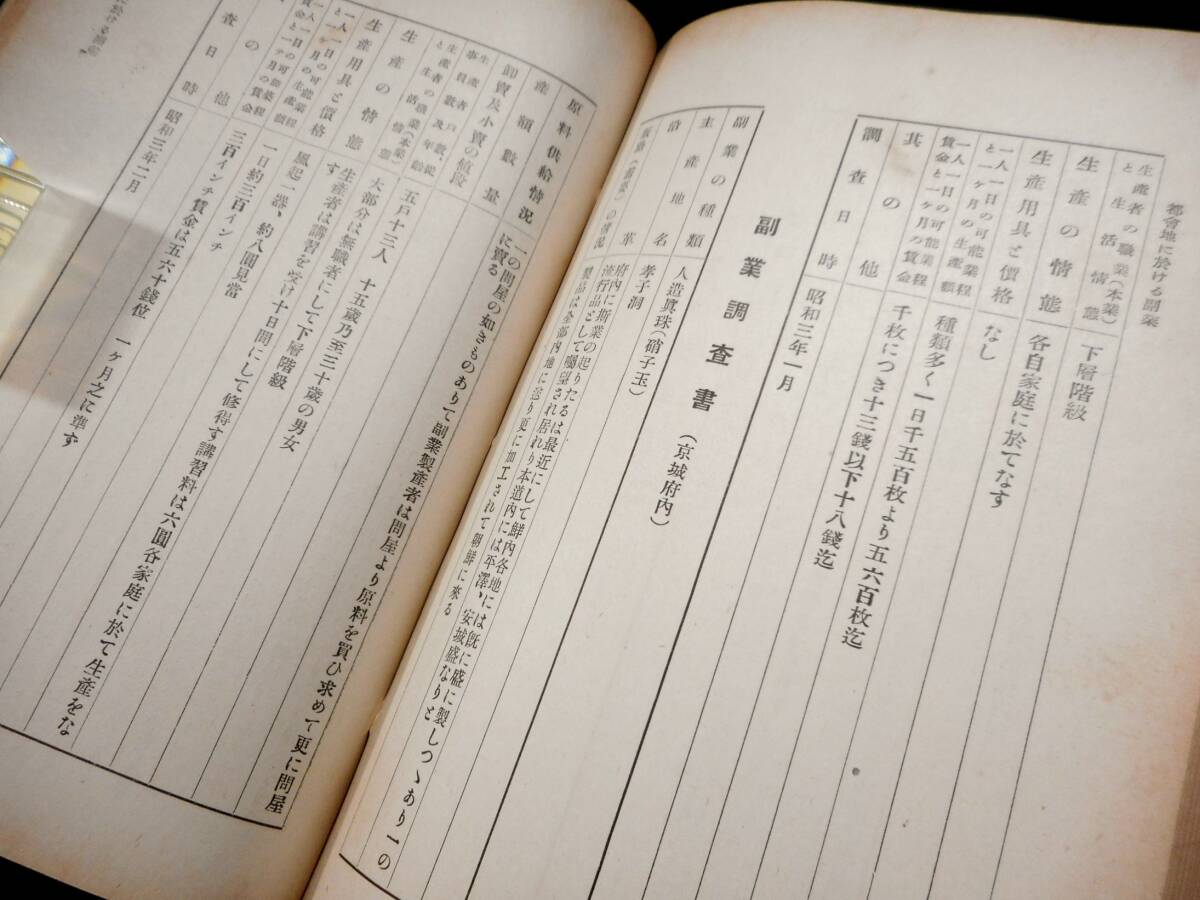 都會地に於ける副業
生產者の職業(本業)と生活情態 下層階級
生產の情態 各自家庭に於てなす
生產用具と價格 なし
一人一日の可能業程と一ケ月の生產額 種類多く一日千五百枚より五六百枚迄
一人一日の可能業程賃金と一ケ月の賃金 千枚につき十三錢以下十八錢迄
其の他
調查日時 昭和三年一月
副業調查書 (京城府內)
副業の種類 人造眞珠(硝子玉)
主產地名 孝子洞
沿革 府內に斯業の起りたるは最近にして鮮內各地には既に盛に製しつゝあり一の
流行品として囑望され居れり本道內には平澤、安城盛なりと
販路(需要)の情況 製品は全部內地に送り更に加工されて朝鮮に來る
原料供給情況 一の問屋の如きものありて副業製產者は問屋より原料を買ひ求めて更に問屋
に賣る
產額數量
卸賣及小賣の値段
生產者數戶數、從事員數及年齡 五戶十三人 十五歲乃至三十歲の男女
生產者の職業(本業)と生活情態 大部分は無職者にして下層階級
生產の情態 生產者は講習を受け十日間にして修得す講習料は六圓各家庭に於て生產をな
す
生產用具と價格 風起一器、約八圓見當
一人一日の可能業程と一ケ月の生產額 一日約三百インチ
一人一日の可能業程賃金と一ケ月の賃金 三百インチ賃金は五六十錢位 一ケ月之に準ず
其の他
調查日時 昭和三年二月
に於ける副業